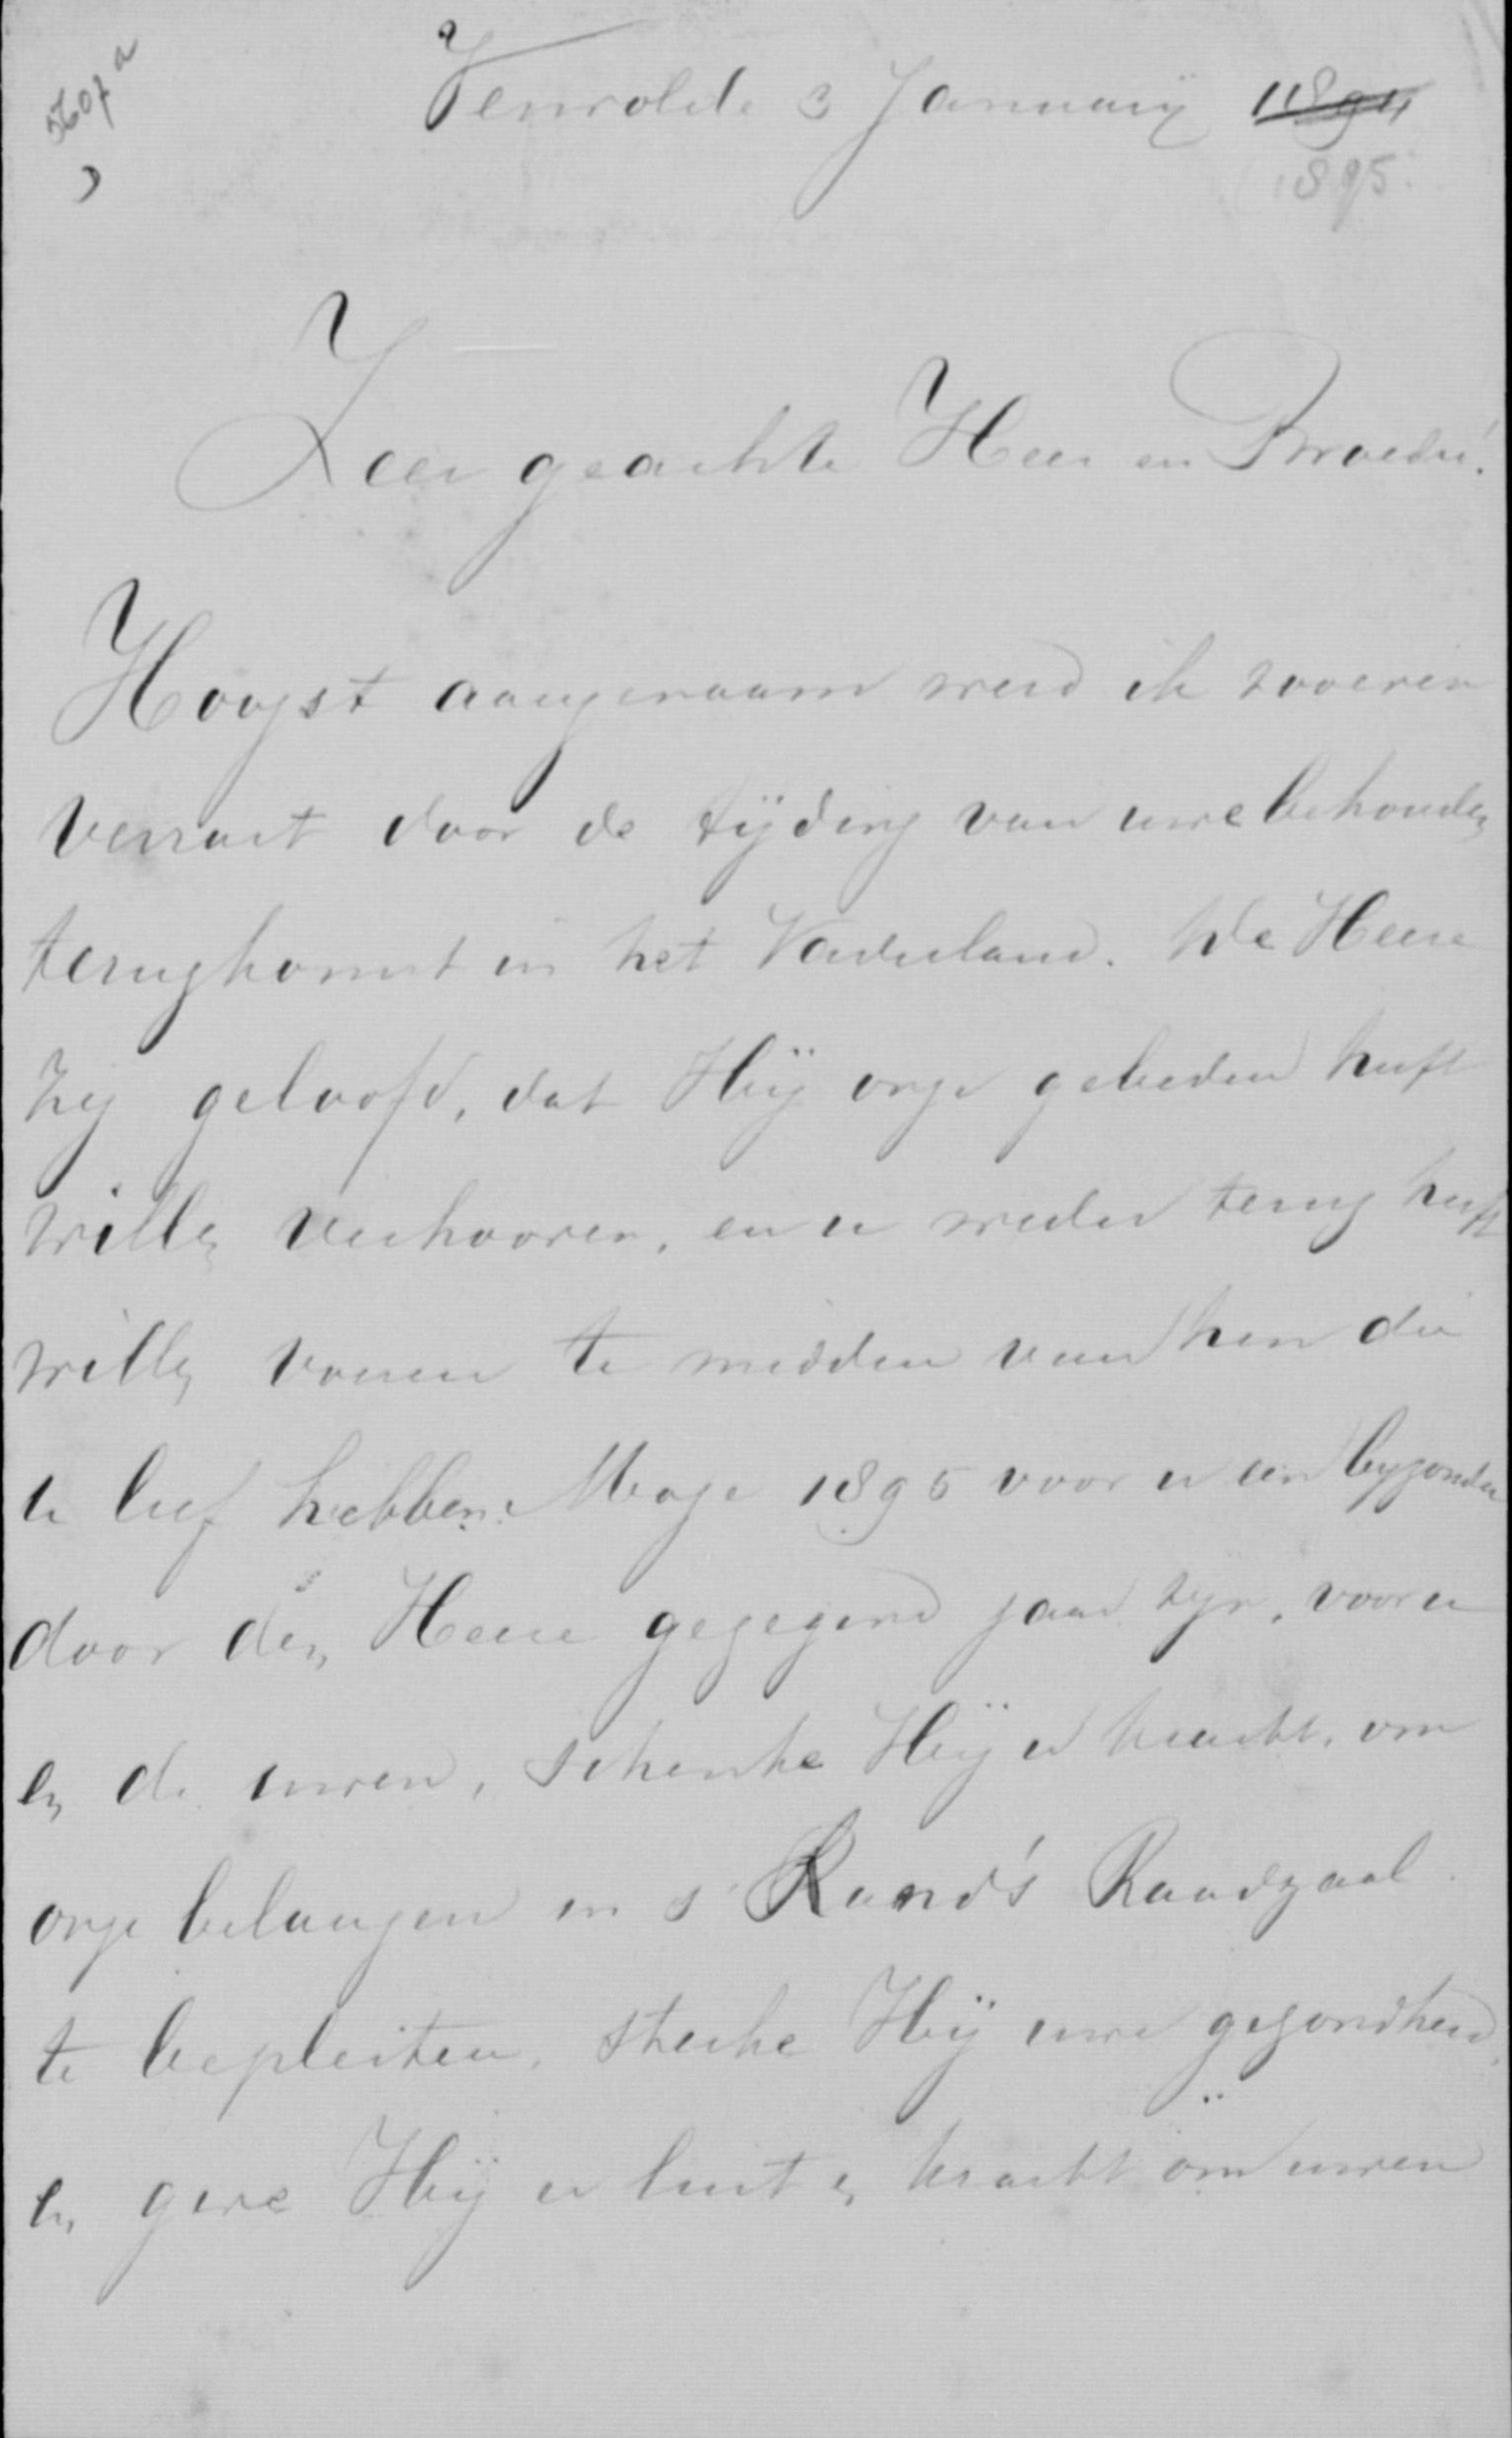 5607 a
Tenwolde 3 Januarij 1894
1895.
Zeer geachte Heer en Broeder!
Hoogst aangenaam werd ik zooeven
verrast door de tijding van uwe behouden
terugkomst in het Vaderland. De Heere
zij geloofd, dat Hij onze gebeden heeft
willen verhooren, en u weder terug heeft
willen voeren te midden van hen die
u lief hebben. Moge 1895 voor u een byzonder
door den Heere gezegend jaar zyn, voor u
en de uwen, schenke Hij u kracht, om
onze belangen in s' Land's Raadzaal
te bepleiten, sterke Hij uwe gezondheid,
en geve Hij u lust en kracht om uwen